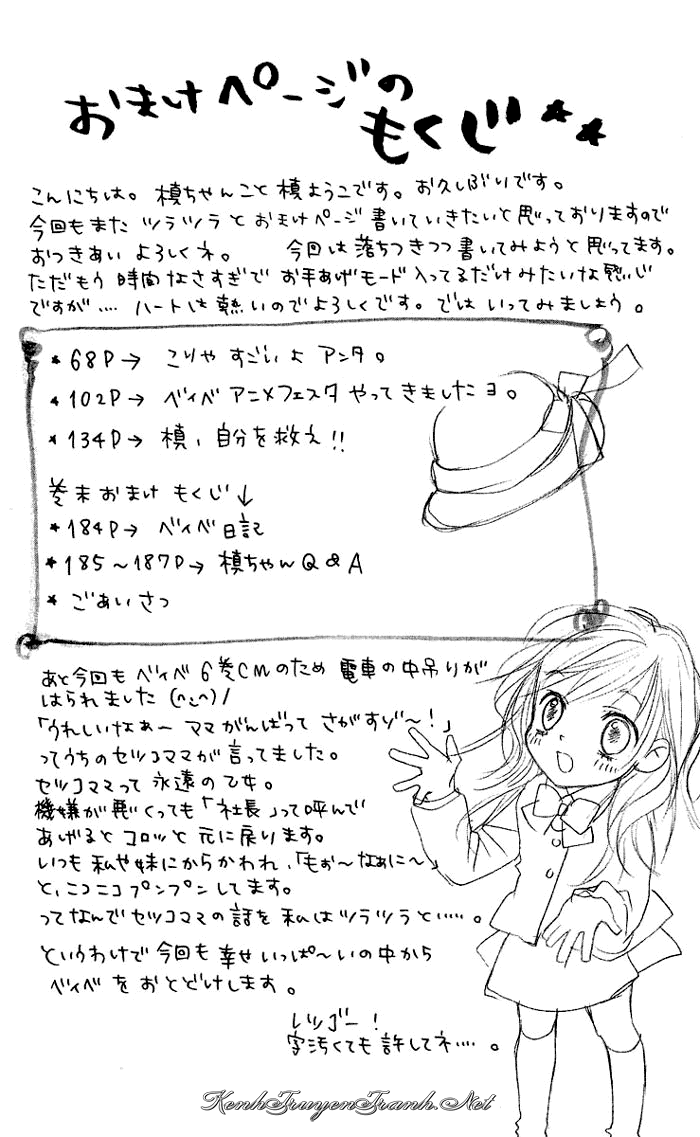 おまけページの
もくじ★★
こんにちは。槙ちゃんこと槙ようこです。お久しぶりです。
今回もまたツラツラとおまけページ書いていきたいと思っておりますので
おつきあいよろしくネ。 今回は落ちつきつつ書いてみようと思ってます。
ただもう時間なさすぎでお手あげモード入ってるだけみたいな感じ
ですが…. ハートは熱いのでよろしくです。ではいってみましょう。
★68P→ こりゃすごいよアンタ。
★102P→ ベイベアニメフェスタやってきましたヨ。
★134P→ 槙、自分を救え!!
巻末おまけもくじ↓
★184P→ ベイベ日記
★185〜187P→ 槙ちゃんQ&A
★ ごあいさつ
あと今回もベイベ6巻CMのため電車の中吊りが
はられました(^◡^)/
「うれしいなぁーママがんばってさがすゾ〜!」
ってうちのセツコママが言ってました。
セツコママって永遠の乙女。
機嫌が悪くっても「社長」って呼んで
あげるとコロッと元に戻ります。
いつも私や妹にからかわれ、「もぉ〜なぁに〜」
と、ニコニコプンプンしてます。
ってなんでセツコママの話を私はツラツラと…‥。
というわけで今回も幸せいっぱ〜いの中から
ベイベをおとどけします。
レッゴー!
字汚くても許してネ….。
KenhTruyenTranh.Net